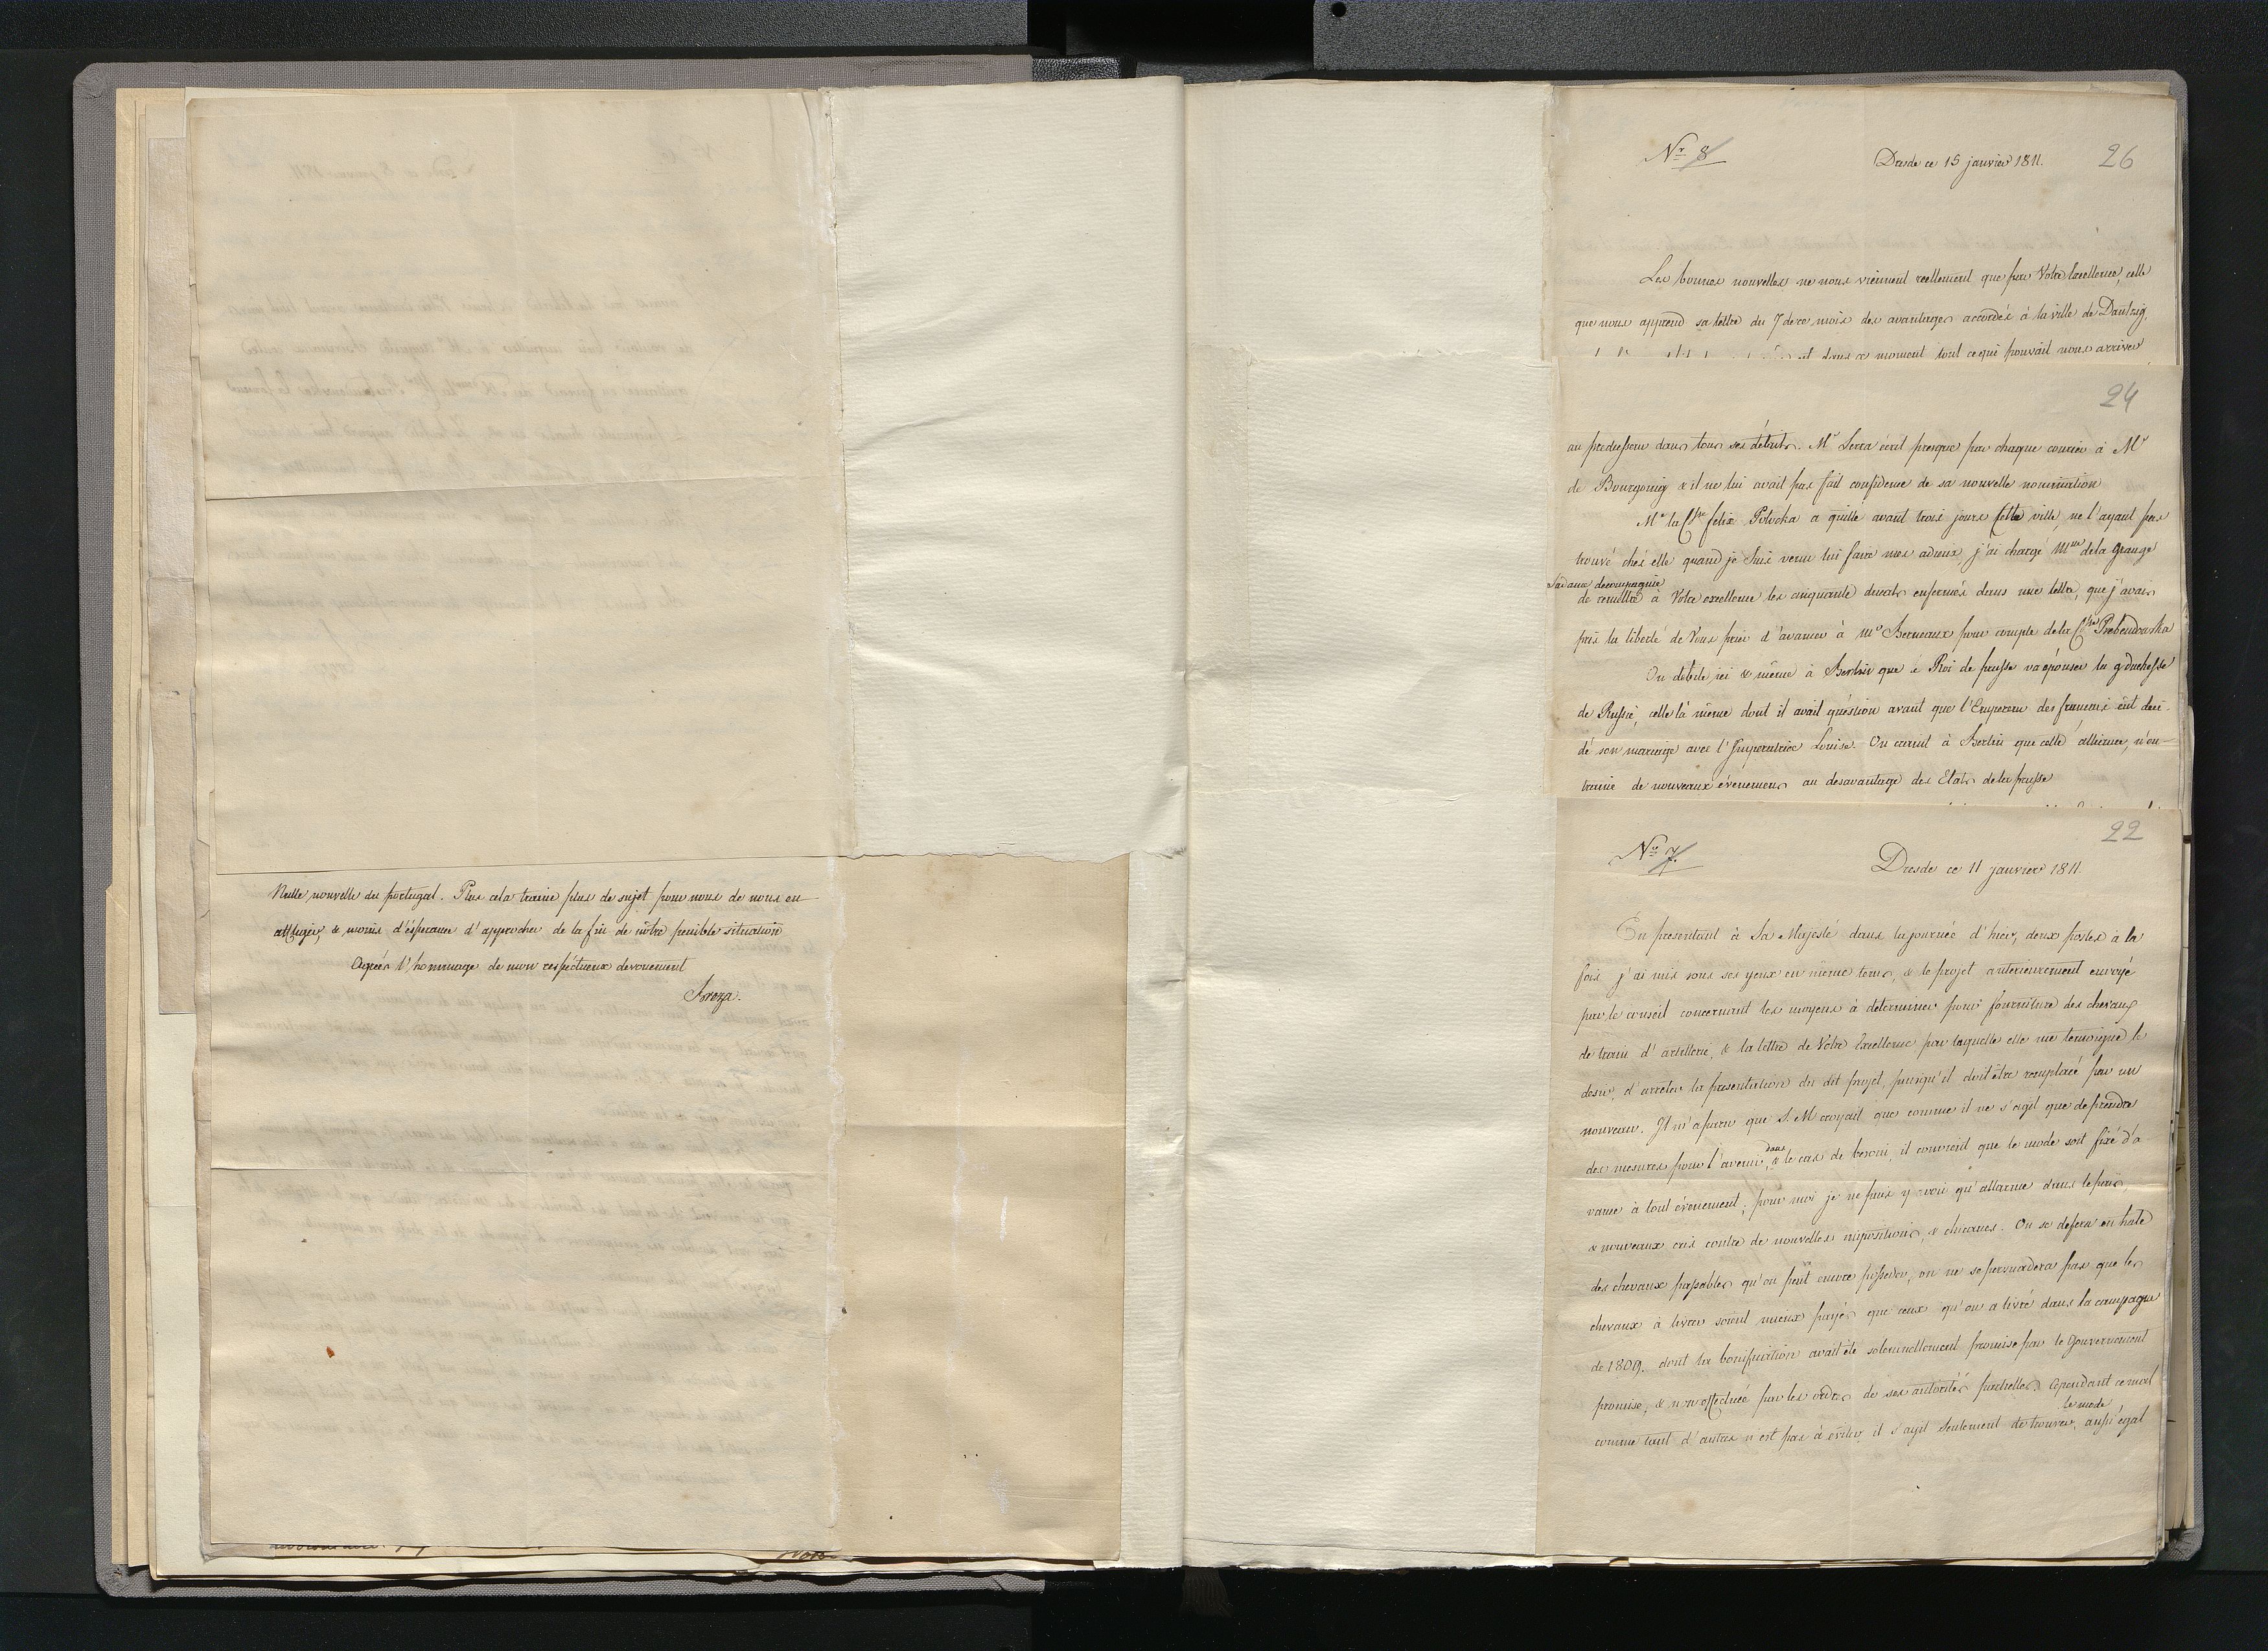 Nulle nouvelle du portugal. Plus cela traine plus de sujet pour nous de nous en
affliger, & moins d'ésperance d'approcher de la fin de nôtre penible situation
Agréés l'hommage de mon respéctueux devouement
Breza.
Nr 8
Dresde ce 15 janvier 1811.
26
Les bonnes nouvelles ne nous viennent reellement que par Votre Excellence, celle
que nous apprend sa lettre du 7 de ce mois des avantages accordés à la ville de Dantzig,
dans ce moment tout ce qui pouvait nous arriver
24
au predecesseur dans tous ses détails. Mr Serra écrit presque par chaque courier à Mr
de Bourgoing & il ne lui avait pas fait confidence de sa nouvelle nomination
Me la Csse félix Potocka a quitté avant trois jours cette ville, ne l'ayant pas
trouvé chés elle quand je suis venu lui faire mes adieux, j'ai chargé Mme de la Grange
sa dame de compagnie
de remettre à Votre excellence les cinquante ducats enfermés dans une lettre, que j'avais
pris la liberté de Vous prier d'avancer à Mr Bernaux pour compte de la Csse Prebendowska
On debite ici & même à Berlin que le Roi de prusse va epouser la g. duchesse
de Russie, celle là même dont il avait quéstion avant que l'Empereur des francais eut deci-
dé son mariage avec l'Imperatrice Louise. On craint à Berlin que cette alliance, n'en-
traine de nouveaux évènemens au desavantage des Etats de la prusse
22
Nr 7.
Dresde ce 11 janvier 1811.
En presentant à Sa Majesté dans la journée d'hier, deux postes à la
fois j'ai mis sous ses yeux en même tems, & le projet anterieurement envoyé
par le conseil concernant les moyens à determiner pour fourniture des chevaux
de train d'artillerie, & la lettre de Votre Excellence par laquelle elle me temoigne le
desir, d'arreter la presentation du dit projet, puisqu'il doit être remplacé par un
nouveau. Il m'a paru que S. M croyait que comme il ne s'agit que de prendre
dans
des mesures pour l'avenir, & le cas de besoin, il convenoit que le mode soit fixé d'a
vance à tout évènement; pour moi je ne puis y voir qu'allarme dans le pais,
& nouveaux cris contre de nouvelles impositions, & chicanes. On se defera en hate
des chevaux passables qu'on peut encore posseder, on ne se persuadera pas que les
chevaux à livrer soient mieux payés que ceux qu'on a livré dans la campagne
de 1809. dont la bonification avait été solemnellement promise par le Gouvernement
promise, & non effectuée par les ordres de ses autorités partielles. Cependant ce mal
le mode
comme tant d'autres n'est pas à eviter, il s'agit seulement de trouver, aussi égal